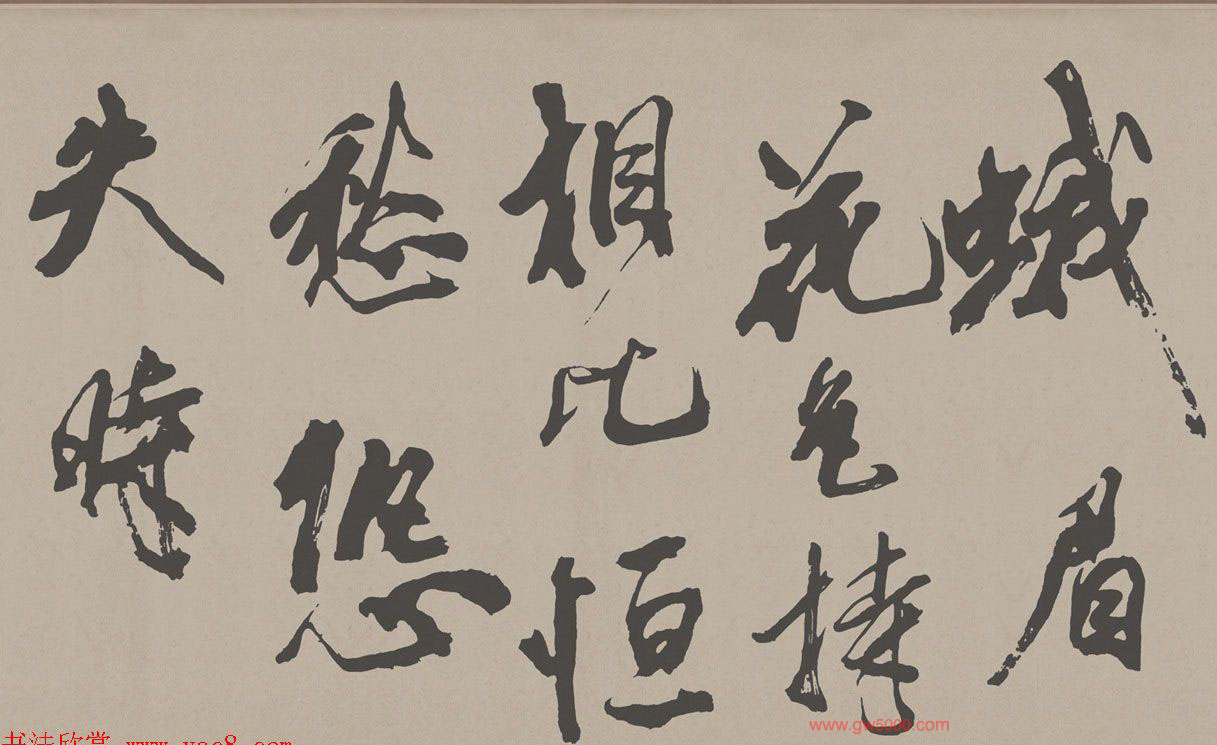 蛾眉
花色持
相比恒
愁恐
失時
www.gw5000.com
书法欣赏 www.yac8.com